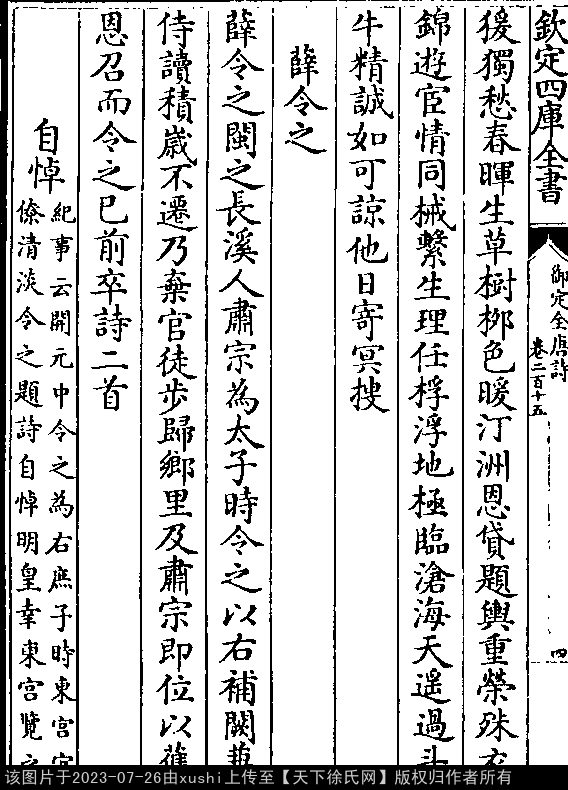 欽定四庫全書
御定全唐詩
卷二百十五
四
猨獨愁春暉生草樹柳色暖汀洲恩貸題輿重榮殊衣
錦遊宦情同械繫生理任桴浮地極臨滄海天遙過斗
牛精誠如可諒他日寄冥搜
薛令之
薛令之閩之長溪人肅宗為太子時令之以右補闕兼
侍讀積歲不遷乃棄官徒步歸鄉里及肅宗即位以舊
恩召而令之已前卒詩二首
自悼
紀事云開元中令之為右庶子時東宮官
僚清淡令之題詩自悼明皇幸東宮覽之
该图片于2023-07-26由xushi上传至【天下徐氏网】版权归作者所有